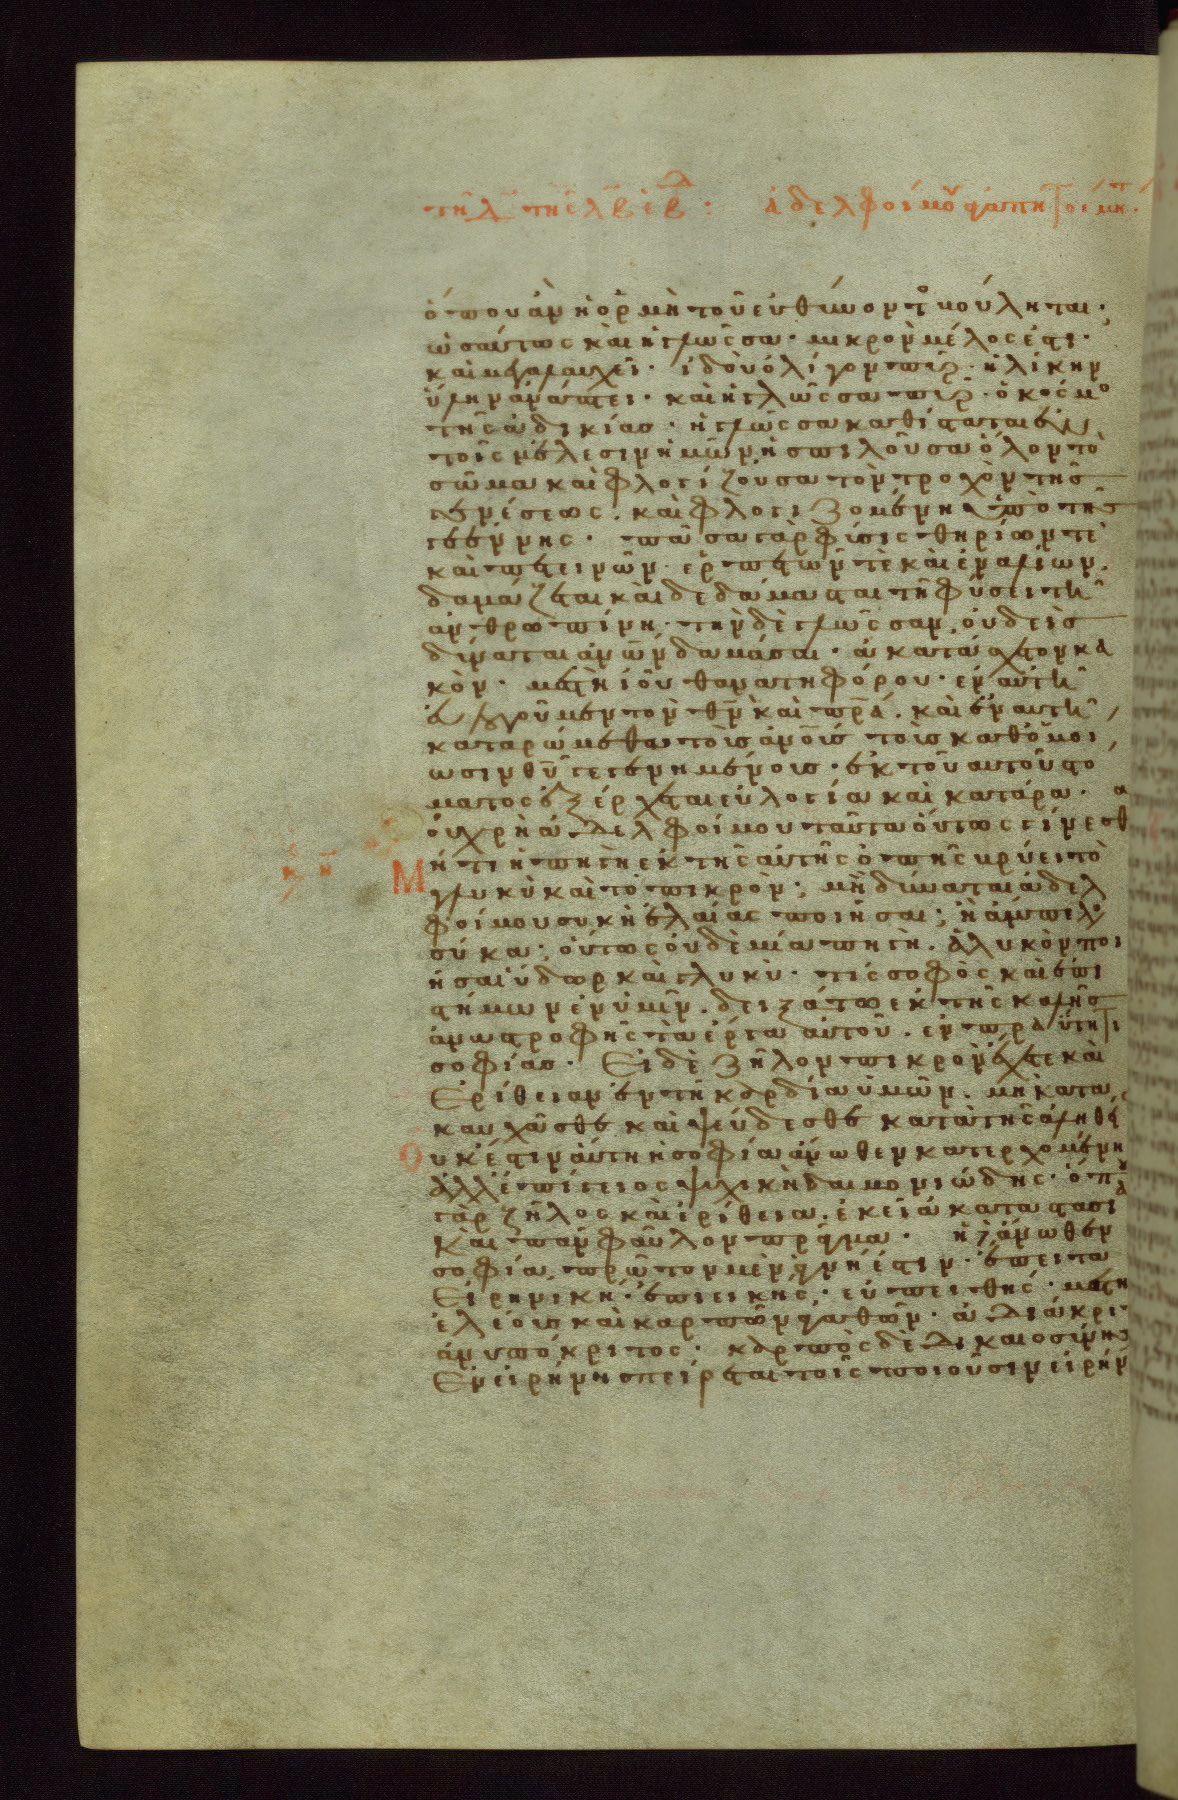 τῆ λ̅ τῆς λ̅β̅ ἑβδ : ἀδελφοί μου ἀγαπητοί μη.
ὅπου ἂν ἡ ὁρμὴ τοῦ εὐθύνοντος βούληται.
ὡσαύτως καὶ ἡ γλῶσσα. μικρὸν μέλος ἐστι.
καὶ μεγαλαυχεῖ. ἰδοὺ ὀλίγον πῦρ. ἡλίκην
ὕλην ἀνάπτει. καὶ ἡ γλῶσσα πῦρ. ὁ κόσμο
τῆς ἀδικίας. ἡ γλῶσσα καθίσταται ἐν
τοῖς μέλεσιν ἡμῶν ἡ σπιλοῦσα ὅλον τὸ
σῶμα καὶ φλογίζουσα τὸν τροχὸν τῆς
γενέσεως. καὶ φλογιζομένη ὑπὸ τῆς
γεέννης. πᾶσα γὰρ φύσις θηρίων τὲ
καὶ πετεινῶν. ἑρπετῶν τὲ καὶ ἐναλίων.
δαμάζεται καὶ δεδάμασται τῆ φύσει τῆ
ἀνθρωπίνη. τὴν δὲ γλῶσσαν. οὐδεὶς
δύναται ἀν̅ων δαμάσαι. ἀκατάσχετον κα
κὸν. μεστὴ ἰοῦ θανατηφόρου. ἐν αὐτῆ
εὐλογοῦμεν τὸν θ̅ν καὶ πρ̅α. καὶ ἐν αὐτῆ
καταρώμεθα τοὺς ἀν̅ους τοὺς καθ ὁμοί
ωσιν θ̅υ γεγενημένους. ἐκ τοῦ αὐτοῦ στό
ματος ἐξέρχεται εὐλογία καὶ κατάρα.
οὐ χρὴ ἀδελφοί μου ταῦτα οὕτως γίνεσθ
Μήτι ἡ πηγὴ ἐκ τῆς αὐτῆς ὀπῆς βρύει τὸ
γλυκὺ καὶ τὸ πικρόν; μὴ δύναται ἀδελ
φοί μου συκῆ ἐλαίας ποιῆσαι; ἢ ἄμπελος
σῦκα; οὕτως οὐδεμία πηγὴ. ἁλυκὸν ποι
ῆσαι ὕδωρ καὶ γλυκὺ. τίς σοφὸς καὶ ἐπι
στήμων ἐν ὑμῖν. δειξάτω ἐκ τῆς καλῆς
ἀναστροφῆς τὰ ἔργα αὐτοῦ. ἐν πραΰτητι
σοφίας. Εἰ δὲ ζῆλον πικρὸν ἔχετε καὶ
Ἐρίθειαν ἐν τῆ καρδία ὑμῶν. μὴ κατα
καυχᾶσθε καὶ ψεύδεσθε κατὰ τῆς ἀληθεί
Οὐκ ἔστιν αὕτη ἡ σοφία ἄνωθεν κατερχομένη
ἀλλ ἐπίγειος ψυχικὴ δαιμονιώδης. ὅπου
γὰρ ζῆλος καὶ ἐρίθεια. ἐκεῖ ἀκαταστασία
Καὶ πᾶν φαῦλον πρᾶγμα. ἡ δὲ ἄνωθεν
σοφία, πρῶτον μὲν ἁγνή ἐστιν. ἔπειτα
Εἰρηνική. ἐπιεικής. εὐπειθής. μεστὴ
ἐλέους καὶ καρπῶν ἀγαθῶν. ἀδιάκρι
ἀνυπόκριτος. καρπὸς δὲ δικαιοσύνης
Ἐν εἰρήνη σπείρεται τοῖς ποιοῦσιν εἰρήν